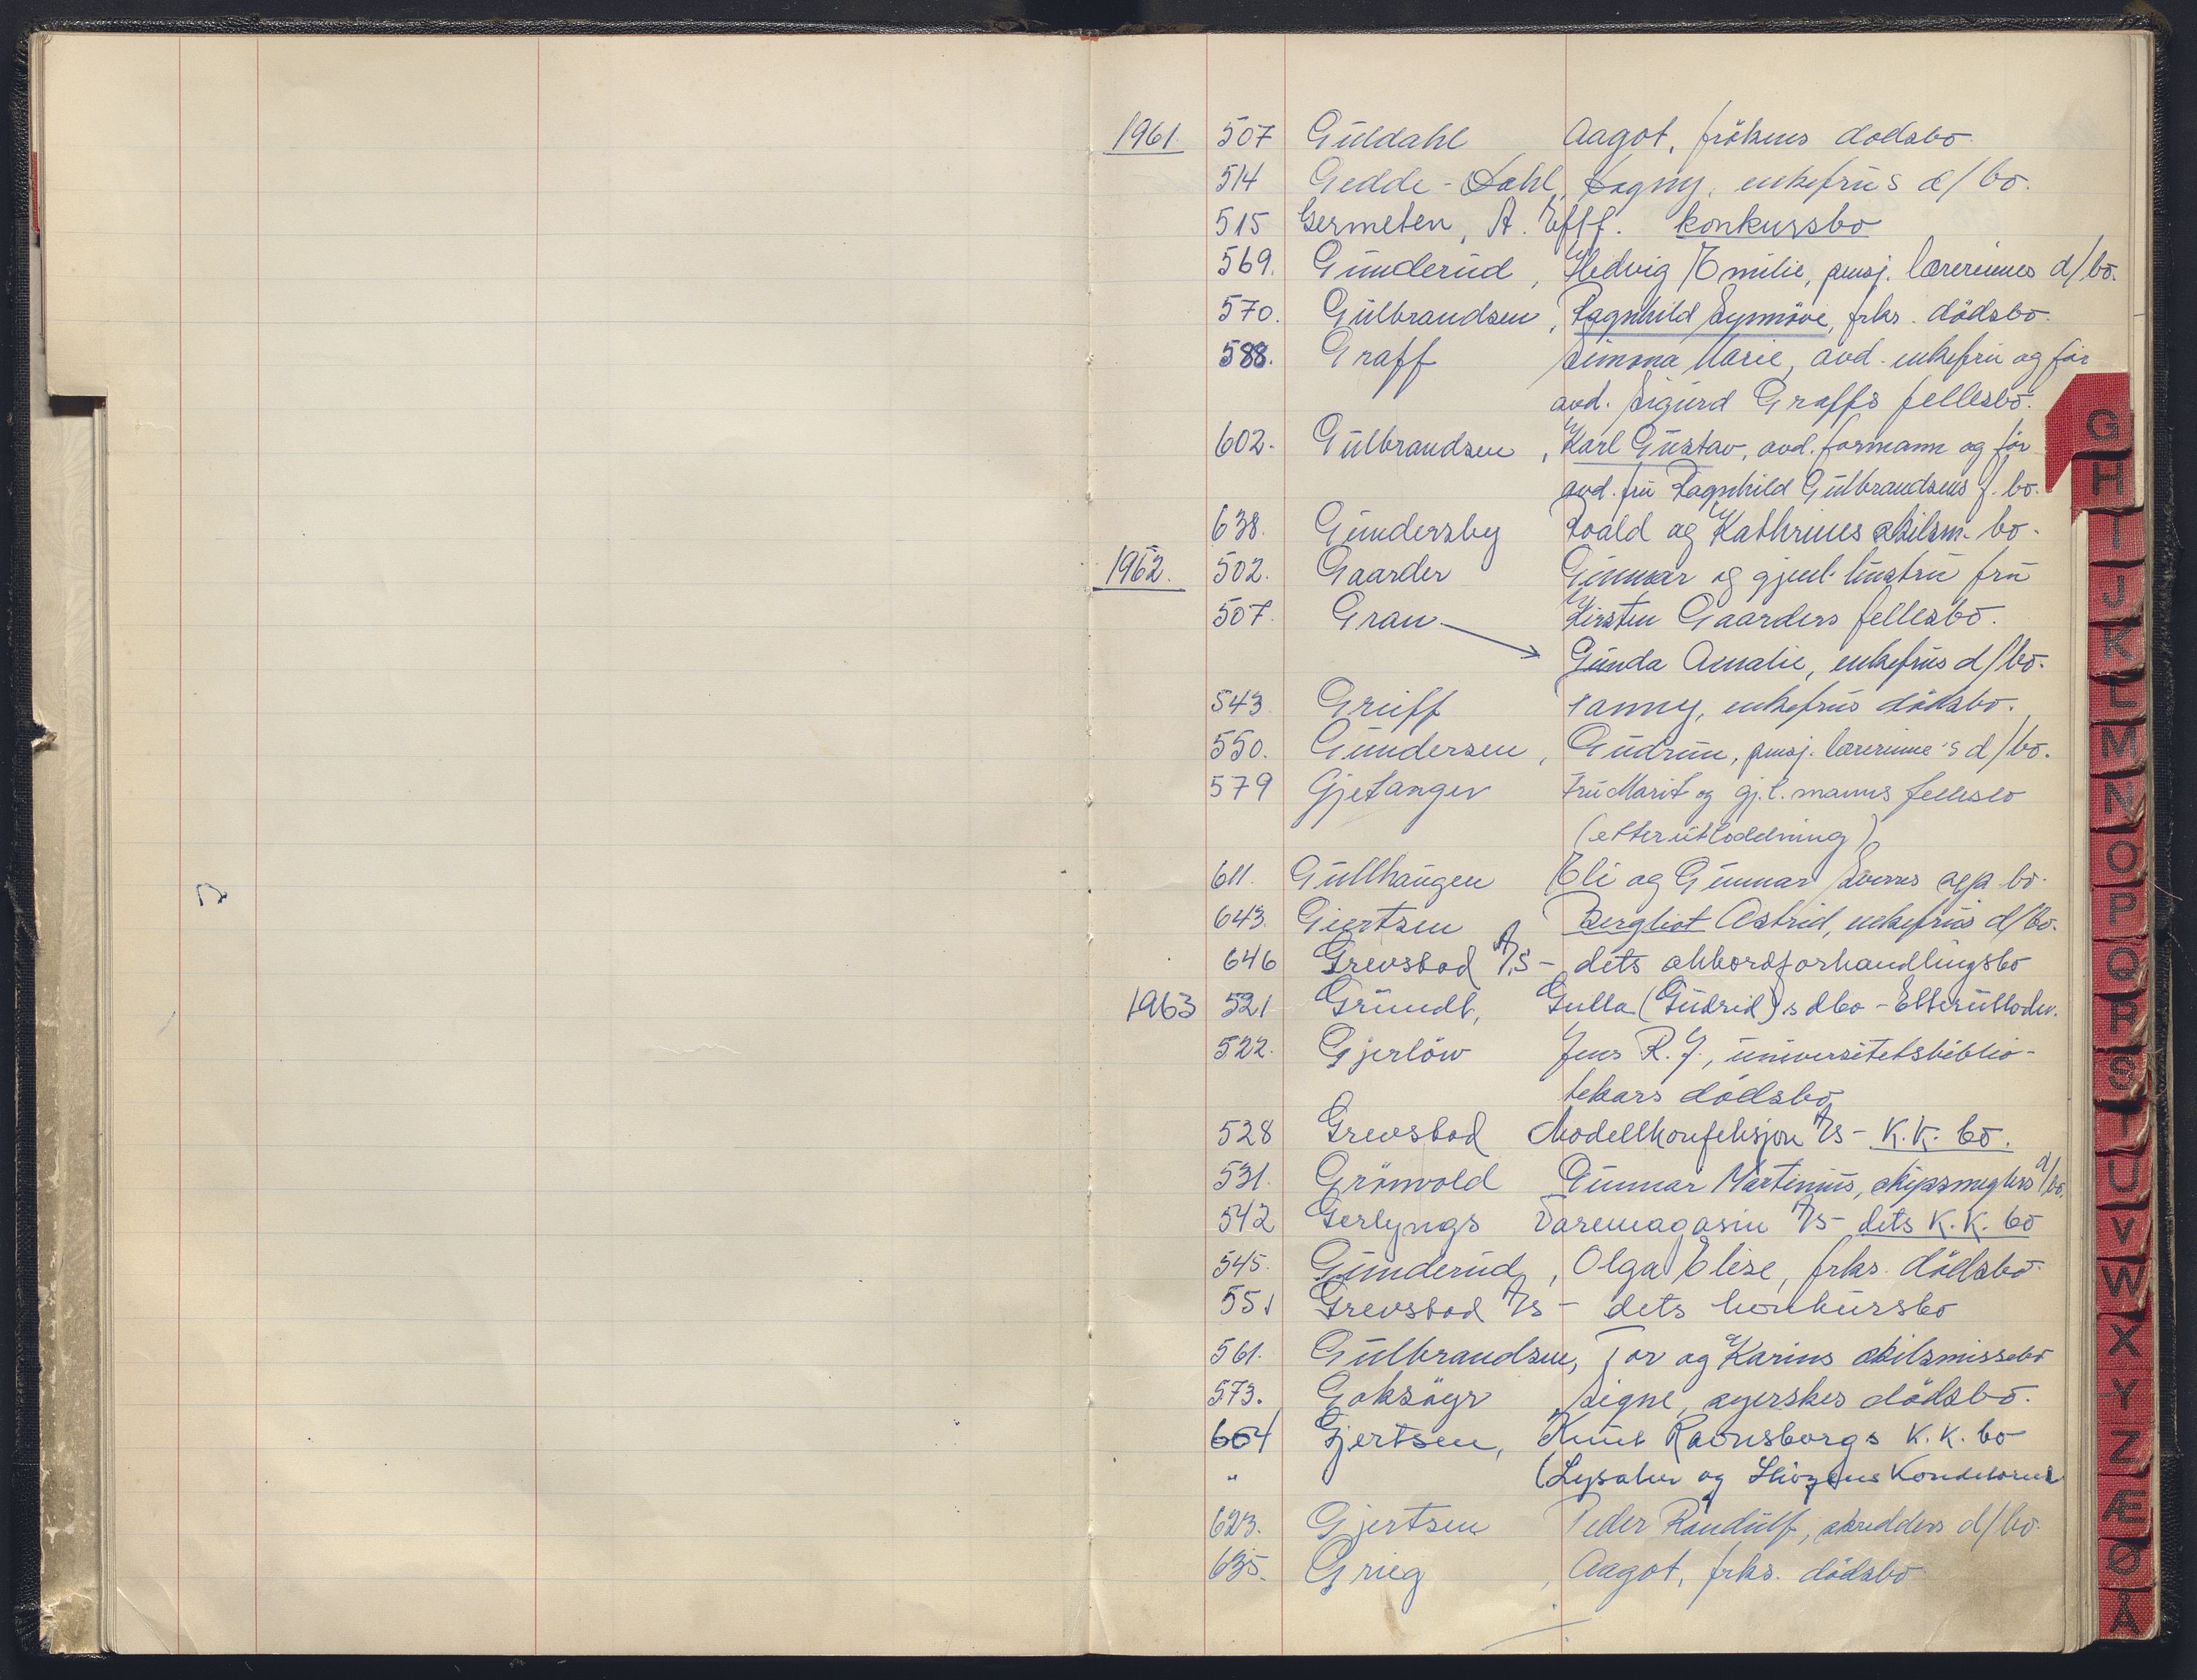 1961. 507 Guldahl Aagot, frökens dödsbo
514 Gedde-Dahl, Dagny, enkefrus d/bo.
515 Germeten, A. Eftf. konkursbo
569. Gunderud, Hedvig Emilie, pensj. lærerinnes d/bo.
570. Gulbrandsen, Ragnhild Synnöve, frks. dödsbo
588. Graff Simona Marie, avd. enkefru og för
avd. Sigurd Graffs fellesbo.
602. Gulbrandsen, Karl Gustav, avd. formann og för
avd. fru Ragnhild Gulbrandsens f. bo.
638. Gundersby Roald og Kathrines skilsm. bo.
1962. 502. Gaarder Gunnar og gjenl. hustru fru
507. Gran Kirsten Gaarders fellesbo.
Gunda Amalie, enkefrus d/bo.
543 Grieff Fanny, enkefrus dödsbo.
550. Gundersen, Gudrun, pensj. lærerinne's d/bo.
579 Gjetanger Fru Marit og gj.l. manns fellesbo
(etterutloddning)
611. Gullhaugen Eli og Gunnar Sverres bo.
643. Giertsen Bergliot Astrid, enkefrus d/bo.
646 Grevstad A/S - dets akkordforhandlingsbo
1963 521 Grundt, Gulla (Gudrid)s dbo - Etterutlodn.
522. Gjerlöw Jens R. J., universitetsbiblio-
tekars dödsbo
528 Grevstad Modellkonfeksjon A/S - K.K. bo.
531. Grönvold Gunnar Martinius, skipsmeglers d/bo.
542 Gerlyngs Varemagasin A/S - dets K.K. bo
545. Gunderud, Olga Elise, frks. dödsbo
551 Grevstad A/S - dets konkursbo
561. Gulbrandsen, Tor og Karins skilsmissebo
573. Goksöyr, Signe, syerskes dödsbo.
604 Gjertsen, Knut Ravnsborgs K.K. bo
" (Lysaker og Konditorier
623. Gjertsen Peder Randulf, skredders d/bo.
635. Grieg, Aagot, frks. dödsbo
G
H
I
J
K
L
M
N
O
P
Q
R
S
T
U
V
W
X
Y
Z
Æ
Ø
Å